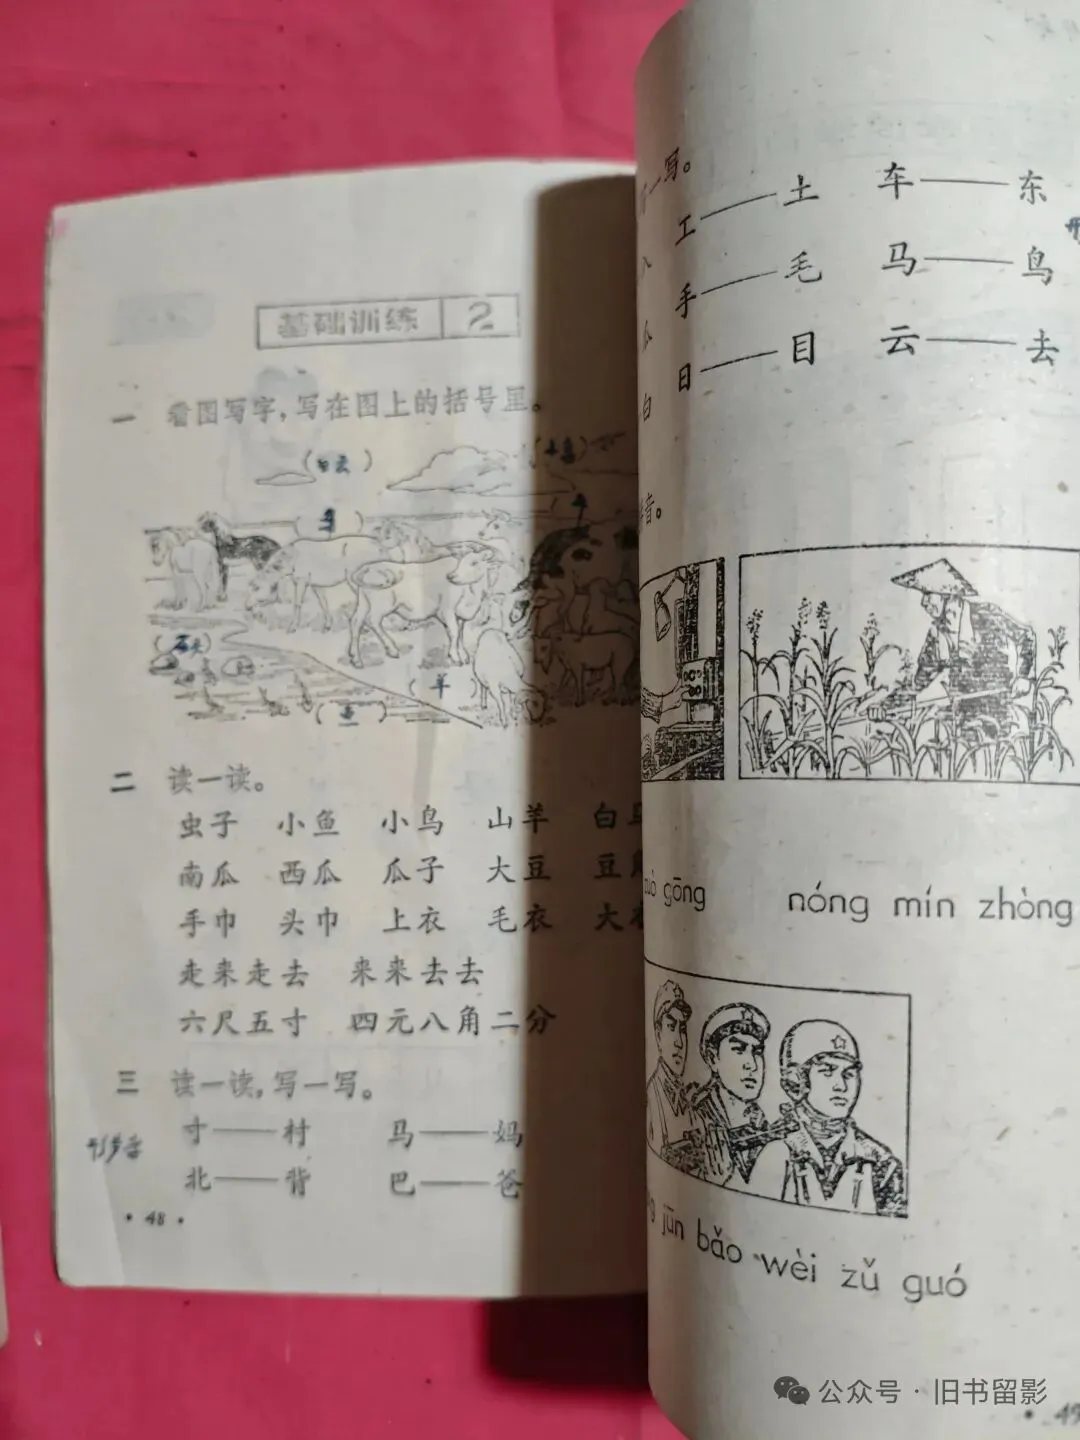 基础训练 2
一 看图写字,写在图上的括号里。
(白云)
(羊)
二 读一读。
虫子 小鱼 小鸟 山羊 白
南瓜 西瓜 瓜子 大豆 豆
手巾 头巾 上衣 毛衣 大
走来走去 来来去去
六尺五寸 四元八角二分
三 读一读,写一写。
寸——村 马——妈
北——背 巴——爸
• 48 •
一写。
工——土 车——东
手——毛 马——鸟
日——目 云——去
白
音。
gōng nóng mín zhòng
jūn bǎo wèi zǔ guó
公众号 · 旧书留影
• 49